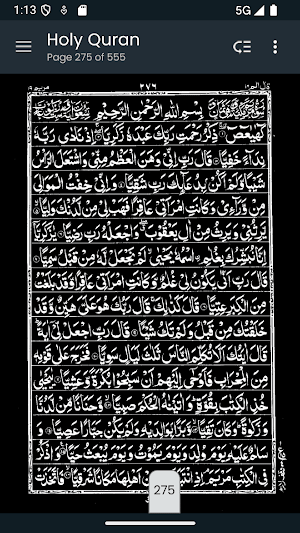 1:13
5G
Holy Quran
Page 275 of 555
٢٧٦
مريم ١٩
بِسْمِ اللهِ الرَّحْمٰنِ الرَّحِيْمِ
كٓهٰيٰعٓصٓ ۝ ذِكْرُ رَحْمَتِ رَبِّكَ عَبْدَهٗ زَكَرِيَّا ۝ اِذْ نَادٰى رَبَّهٗ
نِدَآءً خَفِيًّا ۝ قَالَ رَبِّ اِنِّيْ وَهَنَ الْعَظْمُ مِنِّيْ وَاشْتَعَلَ الرَّاْسُ
شَيْبًا وَّلَمْ اَكُنْۢ بِدُعَآئِكَ رَبِّ شَقِيًّا ۝ وَاِنِّيْ خِفْتُ الْمَوَالِيَ
مِنْ وَّرَآءِيْ وَكَانَتِ امْرَاَتِيْ عَاقِرًا فَهَبْ لِيْ مِنْ لَّدُنْكَ وَلِيًّا ۝
يَّرِثُنِيْ وَيَرِثُ مِنْ اٰلِ يَعْقُوْبَ وَاجْعَلْهُ رَبِّ رَضِيًّا ۝ يٰزَكَرِيَّآ
اِنَّا نُبَشِّرُكَ بِغُلٰمِ ِۨاسْمُهٗ يَحْيٰى لَمْ نَجْعَلْ لَّهٗ مِنْ قَبْلُ سَمِيًّا ۝
قَالَ رَبِّ اَنّٰى يَكُوْنُ لِيْ غُلٰمٌ وَّكَانَتِ امْرَاَتِيْ عَاقِرًا وَّقَدْ بَلَغْتُ
مِنَ الْكِبَرِ عِتِيًّا ۝ قَالَ كَذٰلِكَ قَالَ رَبُّكَ هُوَ عَلَيَّ هَيِّنٌ وَّقَدْ
خَلَقْتُكَ مِنْ قَبْلُ وَلَمْ تَكُ شَيْئًا ۝ قَالَ رَبِّ اجْعَلْ لِّيْٓ اٰيَةً
قَالَ اٰيَتُكَ اَلَّا تُكَلِّمَ النَّاسَ ثَلٰثَ لَيَالٍ سَوِيًّا ۝ فَخَرَجَ عَلٰى قَوْمِهٖ
مِنَ الْمِحْرَابِ فَاَوْحٰٓى اِلَيْهِمْ اَنْ سَبِّحُوْا بُكْرَةً وَّعَشِيًّا ۝ يٰيَحْيٰى
خُذِ الْكِتٰبَ بِقُوَّةٍ وَاٰتَيْنٰهُ الْحُكْمَ صَبِيًّا ۝ وَّحَنَانًا مِّنْ لَّدُنَّا
وَزَكٰوةً وَكَانَ تَقِيًّا ۝ وَّبَرًّۢا بِوَالِدَيْهِ وَلَمْ يَكُنْ جَبَّارًا عَصِيًّا ۝ وَ
سَلٰمٌ عَلَيْهِ يَوْمَ وُلِدَ وَيَوْمَ يَمُوْتُ وَيَوْمَ يُبْعَثُ حَيًّا ۝ وَاذْكُرْ
فِي الْكِتٰبِ مَرْيَمَ اِذِ مِنْ اَهْلِهَا مَكَانًا شَرْقِيًّا ۝ فَاتَّخَذَتْ
275